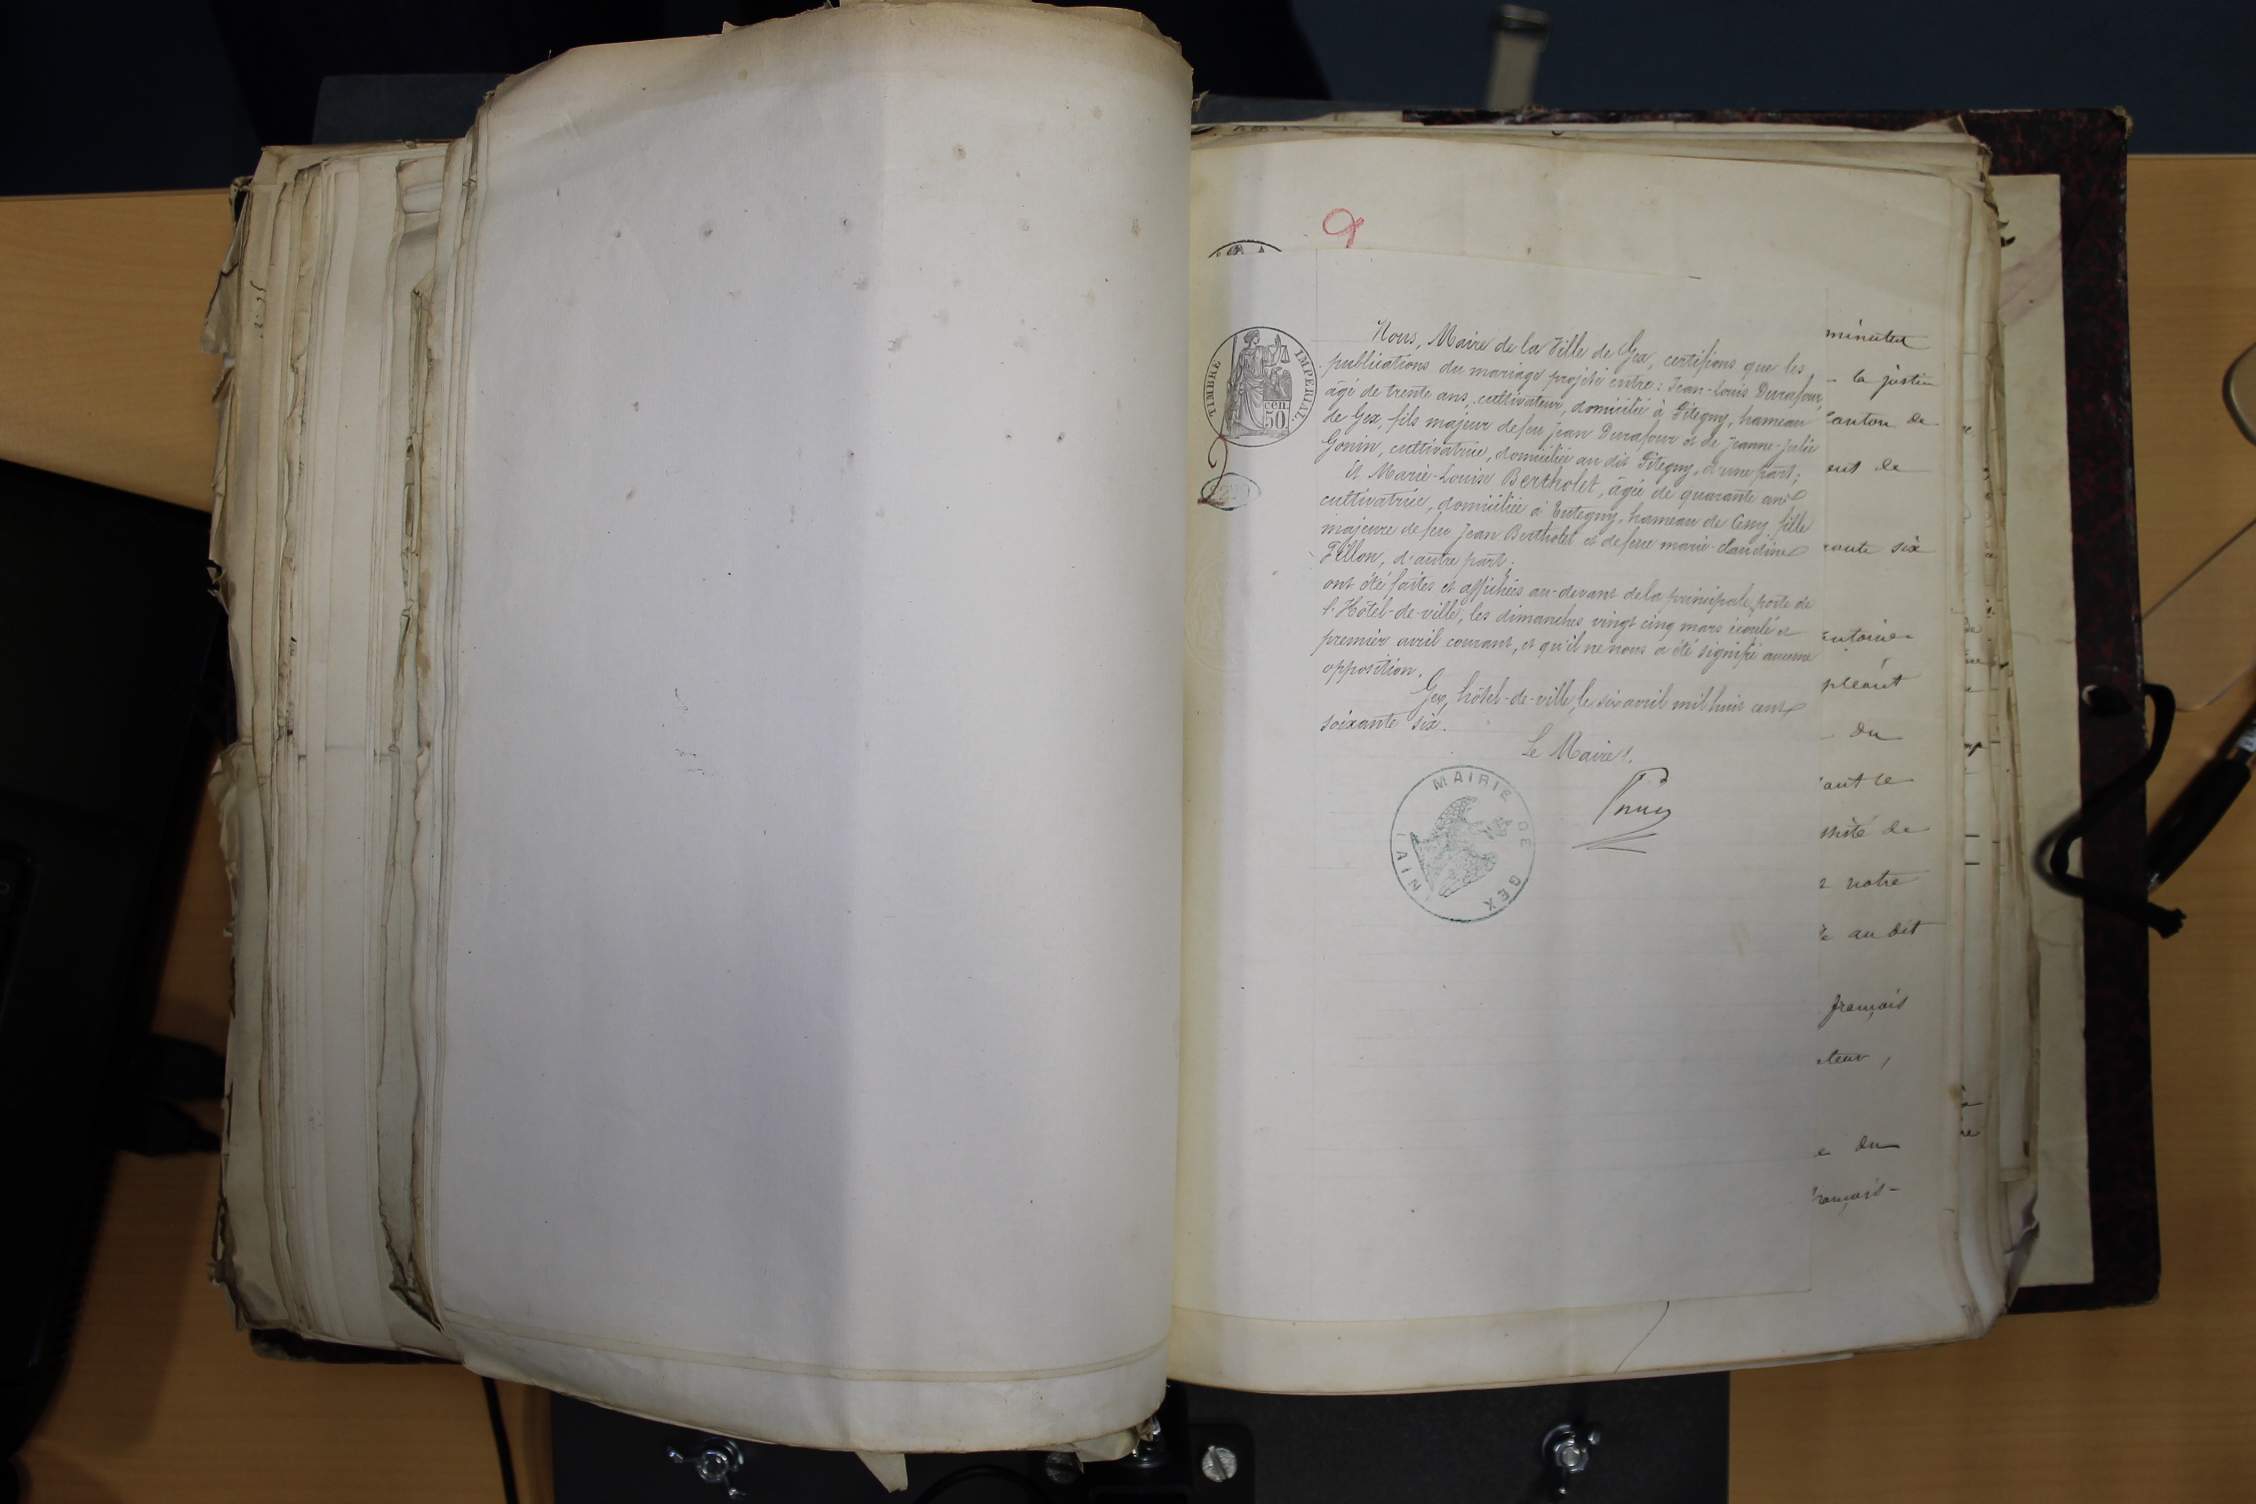 9
TIMBRE IMPERIAL
50 cen.
Nous, Maire de la Ville de Gex, certifions que les
publications du mariage projeté entre: Jean-Louis Durafour,
âgé de trente ans, cultivateur, domicilié à Pitegny, hameau
de Gex, fils majeur de feu Jean Durafour et de Jeanne-Julie
Gonin, cultivatrice, domiciliée au dit Pitegny, d'une part;
Et Marie-Louise Bertholet, âgée de quarante ans
cultivatrice, domiciliée à Tutegny, hameau de Cessy, fille
majeure de feu Jean Bertholet et de feue marie-Claudine
Fillon, d'autre part;
ont été faites et affichées au-devant de la principale porte de
l'Hôtel-de-ville, les dimanches vingt cinq mars écoulé et
premier avril courant, et qu'il ne nous a été signifié aucune
opposition.
Gex, hôtel-de-ville, le six avril mil huit cent
soixante six.
Le Maire,
MAIRIE DE GEX
(AIN)
minutes
la justice
canton de
ent de
rante six
antoine
pleant
du
ant le
notre
au dit
français
teur,
e du
français